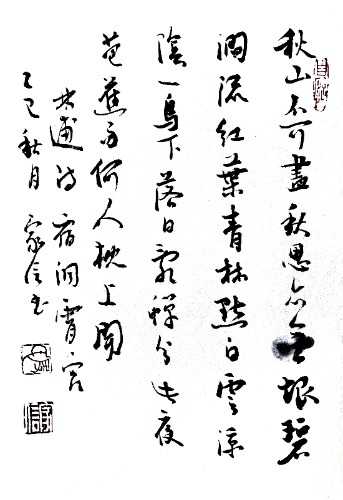 秋山不可盡秋思亦無垠碧
澗流紅葉青林點白雲涼
陰一鳥下落日亂蟬分此夜
芭蕉雨何人枕上聞
林逋詩宿洞霄宮
乙巳秋月家信书